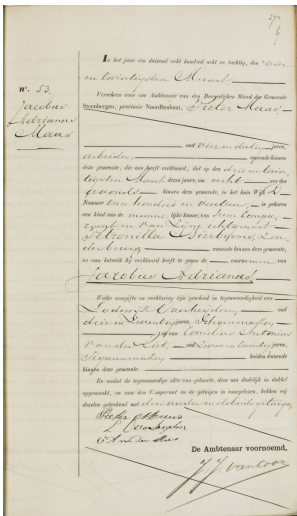 N°. 53.
Jacobus
Adrianus
Maas
In het jaar een duizend acht honderd acht en tachtig, den vier
en twintigsten Maart
Verscheen voor ons Ambtenaar van den Burgerlijken Stand der Gemeente
Steenbergen, provincie Noordbrabant, Pieter Maas,
oud jaren,
arbeider, wonende binnen
deze gemeente, die ons heeft verklaard, dat op den drie en twin
tigsten Maart dezes jaars, om acht ure des
avonds binnen deze gemeente, in het huis Wijk
Nummer een honderd en veertien, is geboren
een kind van de mannelijke kunne, van hem
en van zijne echtgenoote
Petronella
wonende binnen deze gemeente,
en aan hetwelk hij verklaard heeft te geven de voornamen van
Jacobus Adrianus
Welke aangifte en verklaring zijn geschied in tegenwoordigheid van
Lodewijk oud
drie en zeventig jaren,
en van Cornelius Antonius
van der oud en twintig jaren,
beiden wonende
binnen deze gemeente.
En nadat de tegenwoordige akte van geboorte, door ons dadelijk in dubbel
opgemaakt, en aan den Comparant en de getuigen is voorgelezen, hebben wij
dezelve geteekend met den vader en de beide getuigen
Pieter Maas
De Ambtenaar voornoemd,
J. J. van Loon